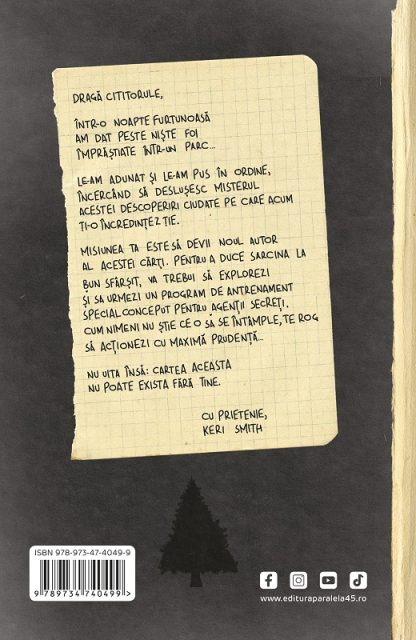 DRAGĂ CITITORULE,
ÎNTR-O NOAPTE FURTUNOASĂ
AM DAT PESTE NIȘTE FOI
ÎMPRĂȘTIATE ÎNTR-UN PARC...
LE-AM ADUNAT ȘI LE-AM PUS ÎN ORDINE,
ÎNCERCÂND SĂ DESLUȘESC MISTERUL
ACESTEI DESCOPERIRI CIUDATE PE CARE ACUM
ȚI-O ÎNCREDINȚEZ ȚIE.
MISIUNEA TA ESTE SĂ DEVII NOUL AUTOR
AL ACESTEI CĂRȚI. PENTRU A DUCE SARCINA LA
BUN SFÂRȘIT, VA TREBUI SĂ EXPLOREZI
ȘI SĂ URMEZI UN PROGRAM DE ANTRENAMENT
SPECIAL CONCEPUT PENTRU AGENȚII SECREȚI.
CUM NIMENI NU ȘTIE CE O SĂ SE ÎNTÂMPLE, TE ROG
SĂ ACȚIONEZI CU MAXIMĂ PRUDENȚĂ...
NU UITA ÎNSĂ: CARTEA ACEASTA
NU POATE EXISTA FĂRĂ TINE.
CU PRIETENIE,
KERI SMITH
ISBN 978-973-47-4049-9
9 789734 740499 >
www.edituraparalela45.ro